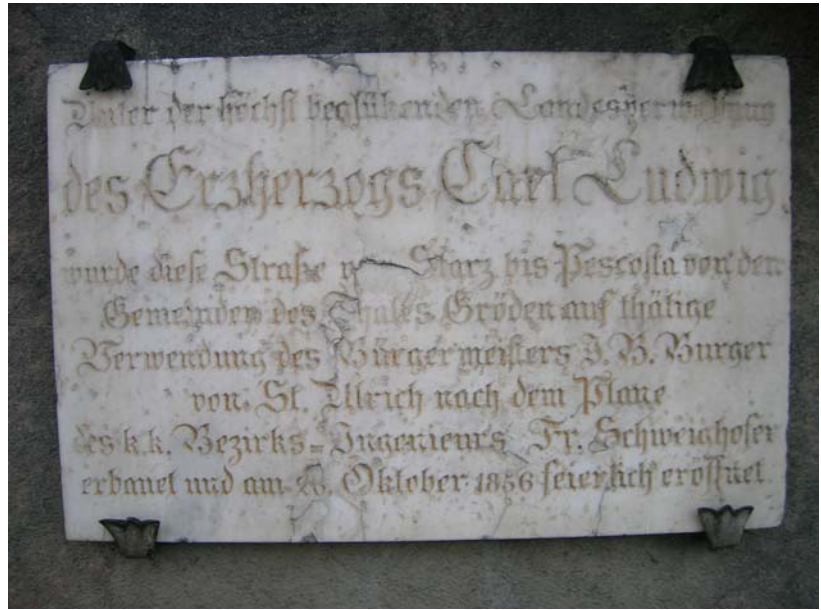 Unter der höchst beglükenden Landesverwaltung
des Erzherzogs Carl Ludwig
wurde diese Straße Starz bis Pescosta von den
Gemeinden des Thales Gröden auf thätige
Verwendung des Bürgermeisters J. B. Burger
von St. Ulrich nach dem Plane
des k.k. Bezirks=Ingenieurs Fr. Schweighofer
erbauet und am Oktober 1856 feierlich eröffnet.